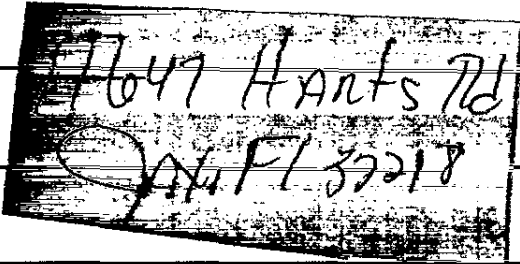 11647 Harts Rd
Jax, Fl 32218